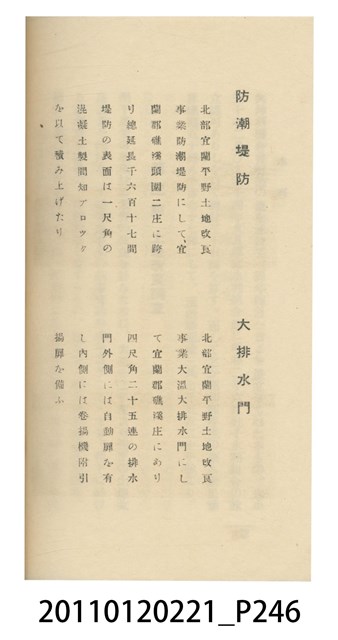 防潮堤防
北部宜蘭平野土地改良
事業防潮堤防にして、宜
蘭郡礁溪頭圍二庄に跨
り總延長千六百十七間
堤防の表面は一尺角の
混凝土製間知ブロツク
を以て積み上げたり
大排水門
北部宜蘭平野土地改良
事業大溫大排水門にし
て宜蘭郡礁溪庄にあり
四尺角二十五連の排水
門外側には自動扉を有
し內側には卷揚機附引
揚扉を備ふ
20110120221_P246